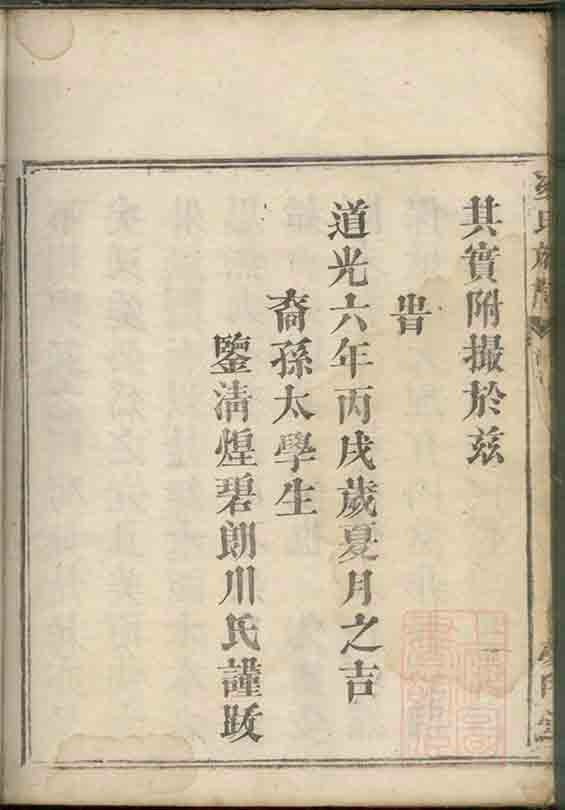 其實附撮於茲
旹
道光六年丙戌歲夏月之吉
裔孫太學生
鑒清煌碧朗川氏謹跋